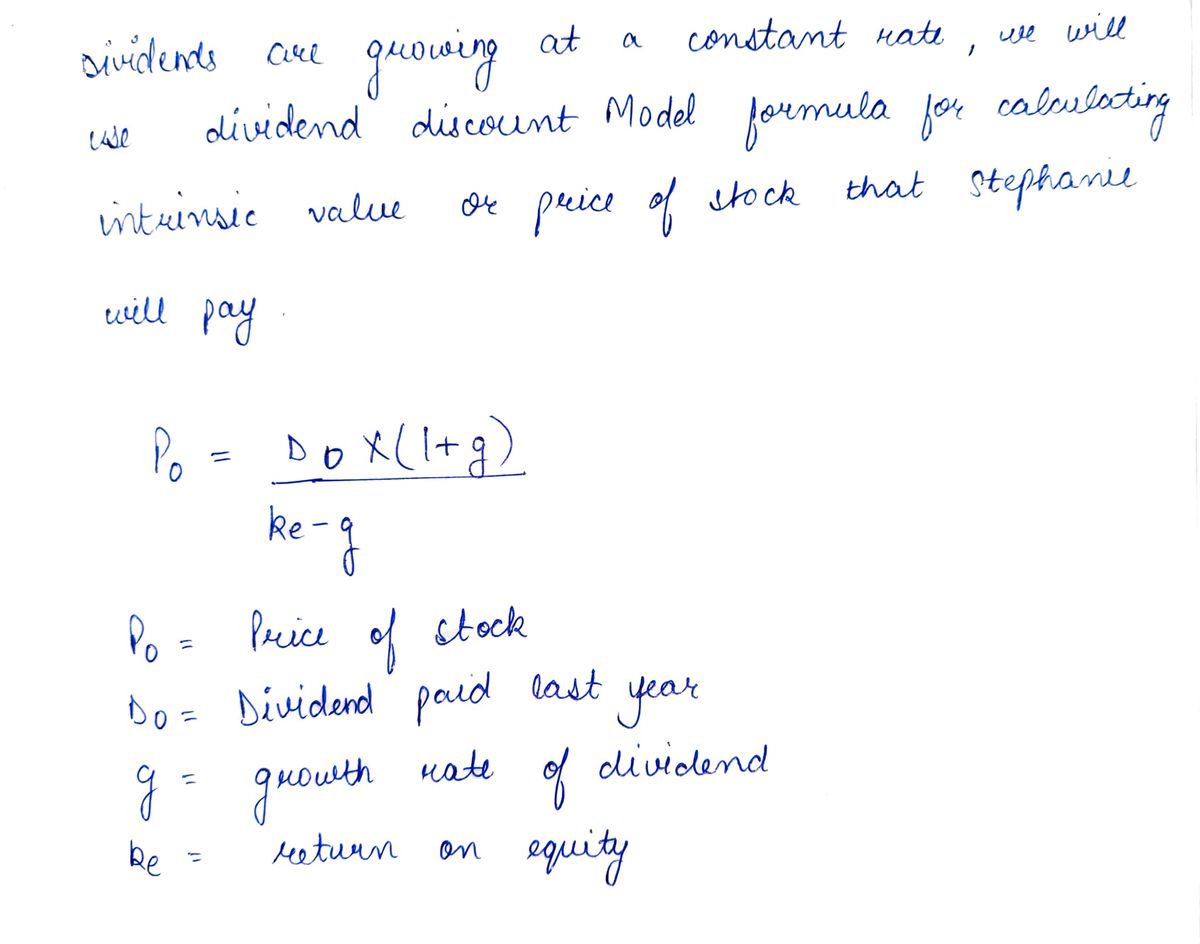 Dividends are growing at a constant rate, we will
use dividend discount Model formula for calculating
intrinsic value or price of stock that stephanie
will pay.
P0 = D0 X(1+g)
ke-g
P0 = Price of stock
D0 = Dividend paid last year
g = growth rate of dividend
ke = return on equity